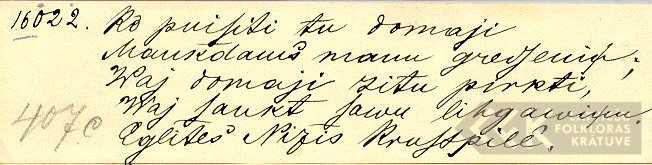 16022. Ko puisiti tu domaji
Maukdams manu gredseniņ;
Waj domaji zitu pirkti,
Waj saukt sawu lihgawiņu.
407c
Eglites Niżis Krustpill.
LFK FOLKLORAS KRĀTUVE